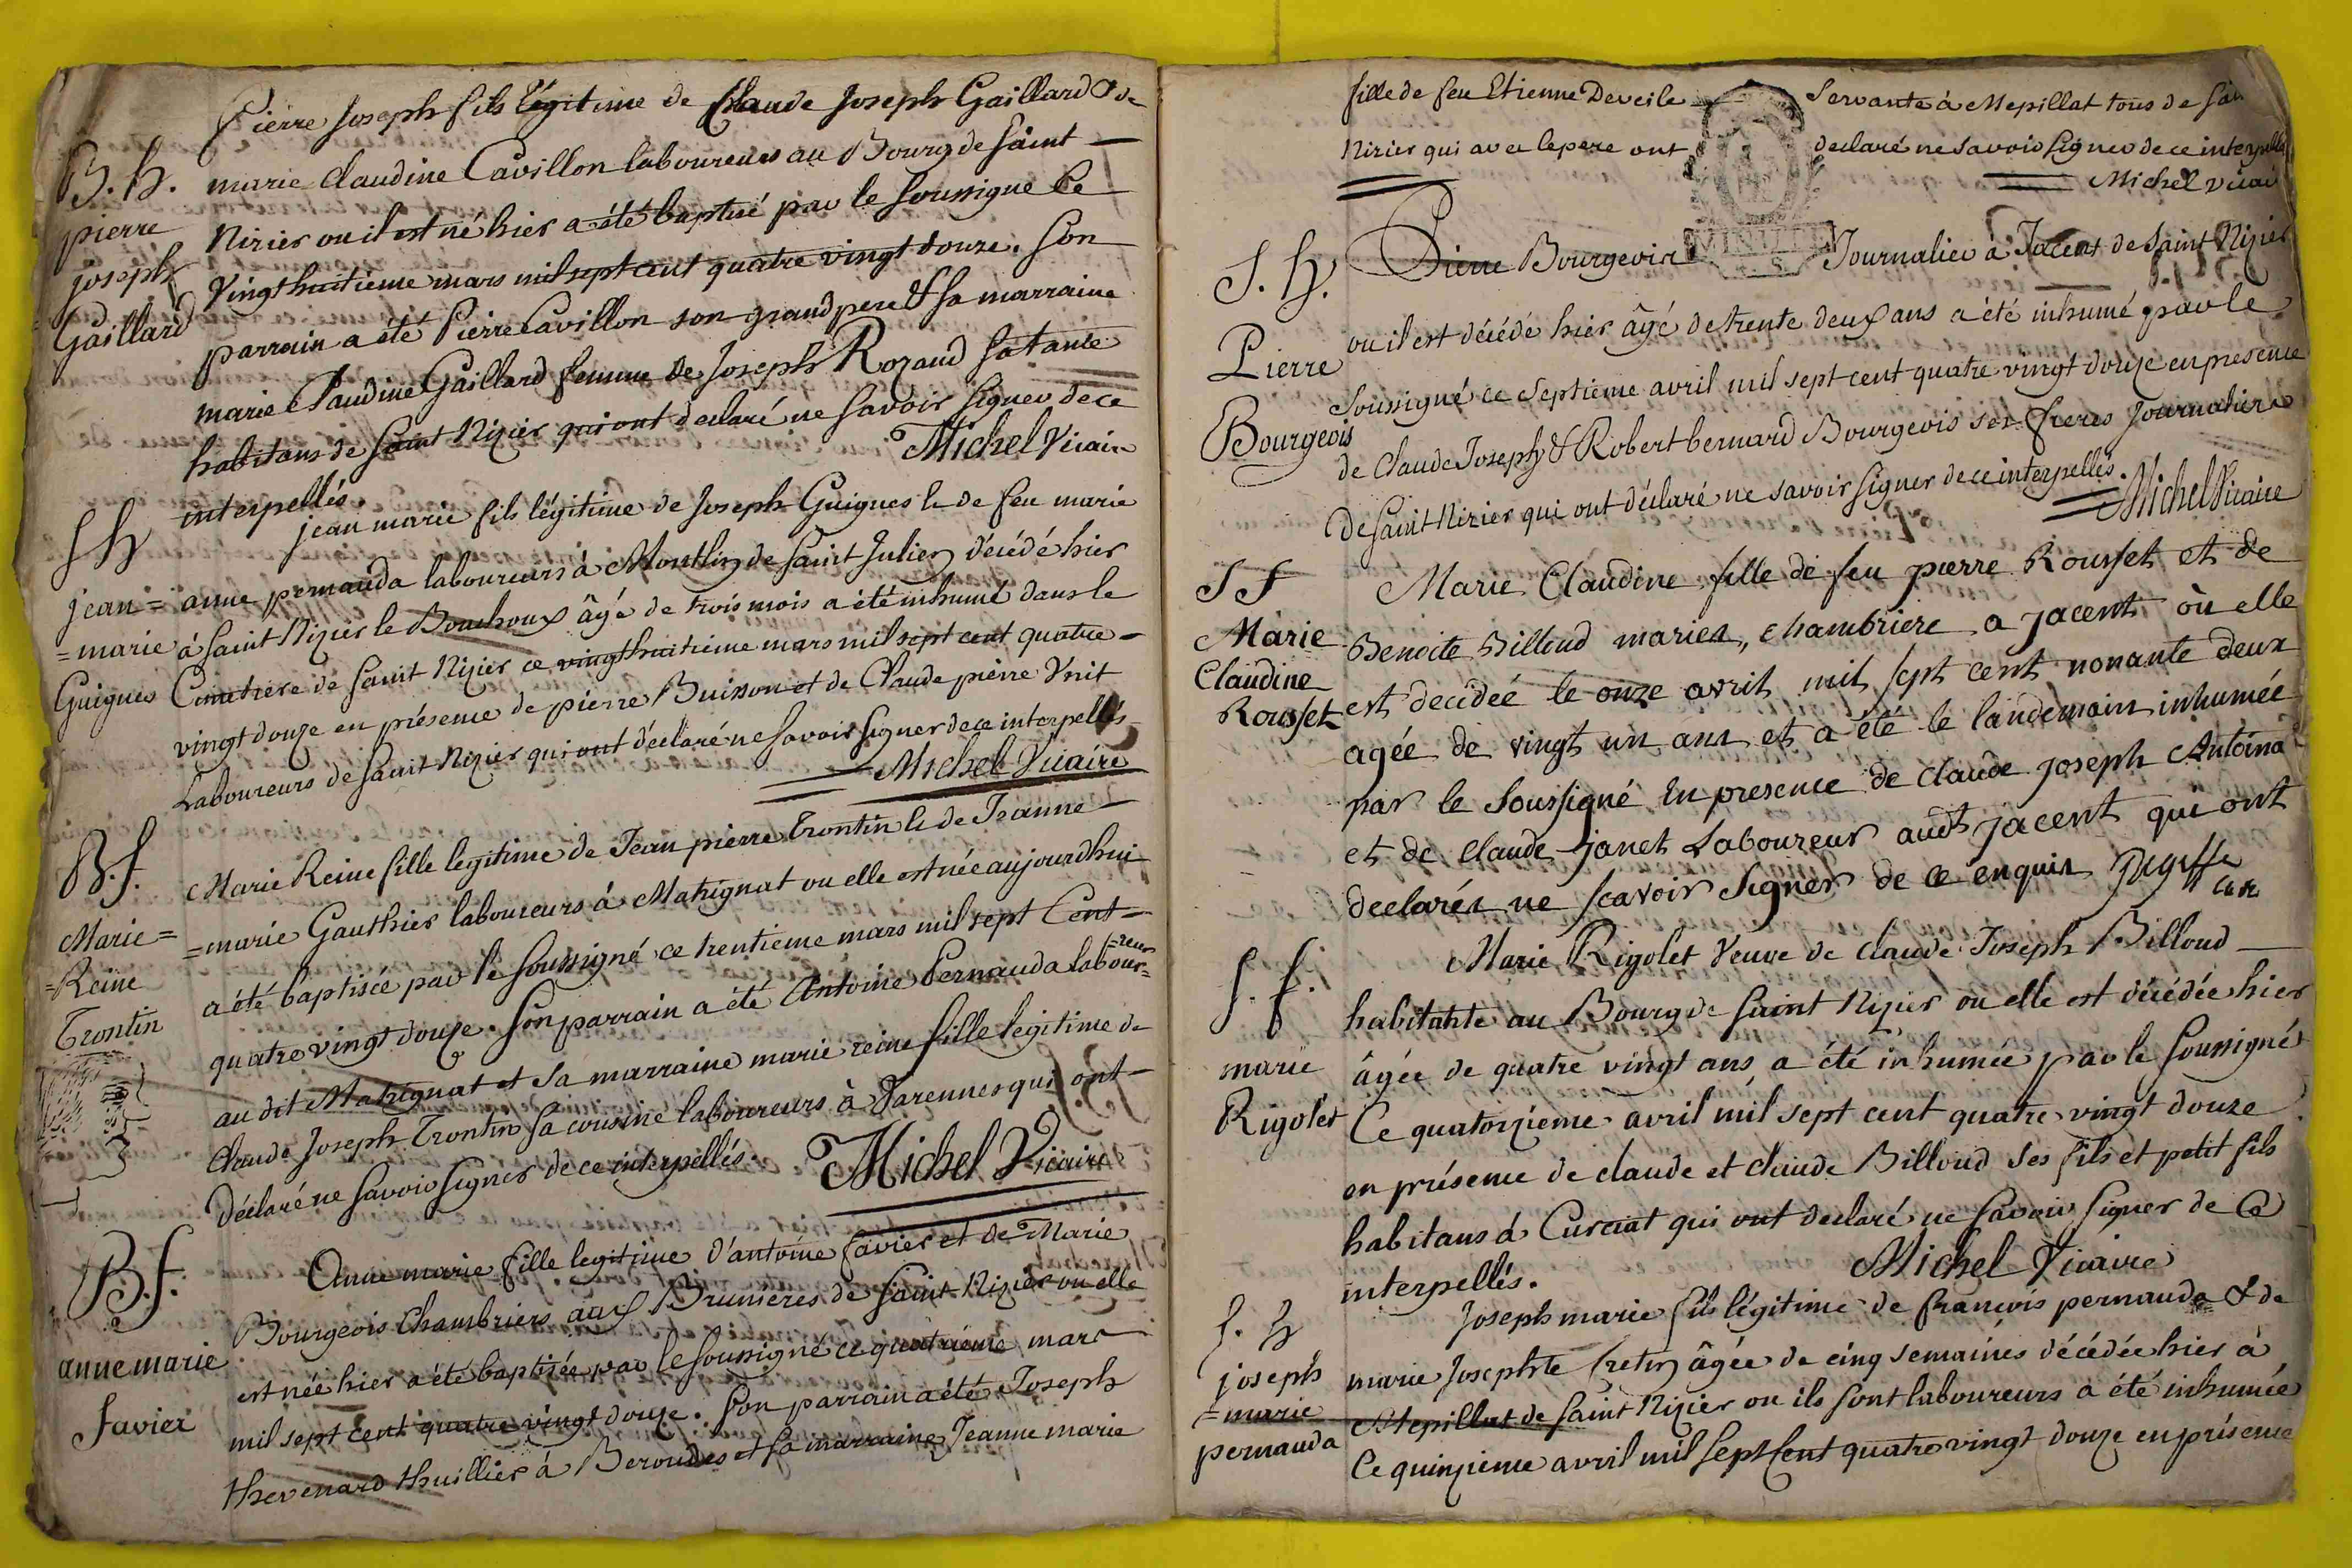 Pierre Joseph fils légitime de Claude Joseph Gaillard & de
B. h. marie Claudine Cavillon laboureurs au Bourg de saint
pierre Nizier ou il est né hier a été baptisé par le soussigné ce
joseph vingthuitieme mars mil sept cent quatre vingt douze. son
Gaillard parrain a été Pierre Cavillon son grand pere & sa marraine
marie Claudine Gaillard femme de Joseph Rozand sa tante
habitans de saint Nizier qui ont declaré ne savoir signer de ce
interpellés. Michel Vicaire
S h jean marie fils légitime de Joseph Guigues & de feu marie
jean= anne pernauda laboureurs à Montlin de saint Julien décédé hier
=marie à saint Nizier le Bouchoux âgé de trois mois a été inhumé dans le
Guigues Cimetiere de saint Nizier ce vingthuitieme mars mil sept cent quatre
vingt douze en présence de pierre Buisson et de Claude pierre Vuit
Laboureurs de saint Nizier qui ont déclaré ne savoir signer de ce interpellés
Michel Vicaire
B. f. Marie Reine fille legitime de Jean pierre Trontin & de Jeanne
Marie= =marie Gauthier laboureurs à Matrignat ou elle est née aujourdhui
=Reine a été baptisée par le soussigné ce trentieme mars mil sept Cent=
Trontin quatre vingt douze. son parrain a été Antoine Pernauda labour=
=reur
au dit Matrignat et sa marraine marie reine fille legitime de
Claude Joseph Trontin sa cousine laboureurs à Varennes qui ont
déclaré ne savoir signer de ce interpellés. Michel Vicaire
B. f. Anne marie fille legitime d'antoine favier et de Marie
Bourgeois Chambriers aux Brunieres de saint Nizier ou elle
anne marie est née hier a été baptisée par le soussigné ce quatrieme mars
favier mil sept cent quatre vingt douze. son parrain a été Joseph
thevenard thuillier à Beroudes et sa marraine Jeanne marie
fille de feu Etienne Deveile Servante à Mepillat tous de
Nizier qui avec le pere ont declaré ne savoir signer de ce interpellés
Michel Vicai
S. h. Pierre Bourgeois Journalier à Jacent de saint Nizier
Pierre ou il est décédé hier âgé de trente deux ans a été inhumé par le
Bourgeois soussigné ce septieme avril mil sept cent quatre vingt douze en presence
de Claude Joseph & Robert bernard Bourgeois ses freres Journaliers
de saint Nizier qui ont déclaré ne savoir signer de ce interpellés.
Michel Vicaire
S f Marie Claudine fille de feu pierre Rousset et de
Marie Benoite Billoud mariez, chambriere a jacent où elle
Claudine est decedeé le onze avril mil sept cent nonante deux
Rousset agée de vingt un ans et a été le landemain inhumée
par le soussigné En presence de claude joseph Antoina
et de Claude janet Laboureur audt jacent qui ont
declarés ne scavoir signer de ce enquis curé
S. f. Marie Rigolet Veuve de claude Joseph Billoud
habitante au Bourg de saint Nizier ou elle est décédée hier
marie âgée de quatre vingt ans, a été inhumée par le soussigné
Rigolet Ce quatorzieme avril mil sept cent quatre vingt douze
en présence de claude et claude Billoud ses fils et petit fils
habitans à Curciat qui ont declaré ne savoir signer de ce
interpellés. Michel Vicaire
S. h Joseph marie fils légitime de françois pernauda & de
joseph marie Josephte âgée de cinq semaines décédée hier à
=marie Mepillat de saint Nizier ou ils sont laboureurs a été inhumée
pernauda Ce quinzieme avril mil sept Cent quatre vingt douze en présence